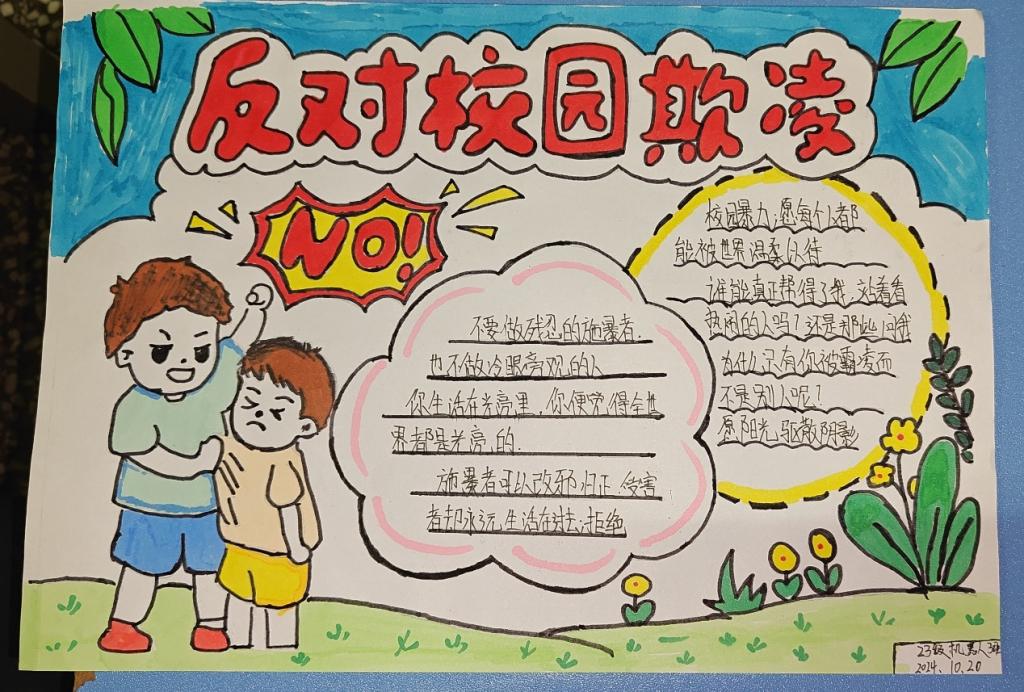 反对校园欺凌
NO!
不要做残忍的施暴者.
也不做冷眼旁观的人
你生活在光亮里,你便觉得全世
界都是光亮的.
施暴者可以改邪归正,受害
者却永远生活在过去;拒绝
校园暴力;愿每个人都
能被世界温柔以待
谁能真正帮得了我,站着看
热闹的人吗?还是那些问我
为什么只有你被霸凌而
不是别人呢?
愿阳光驱散阴影
23级机器人3班
2024.10.20